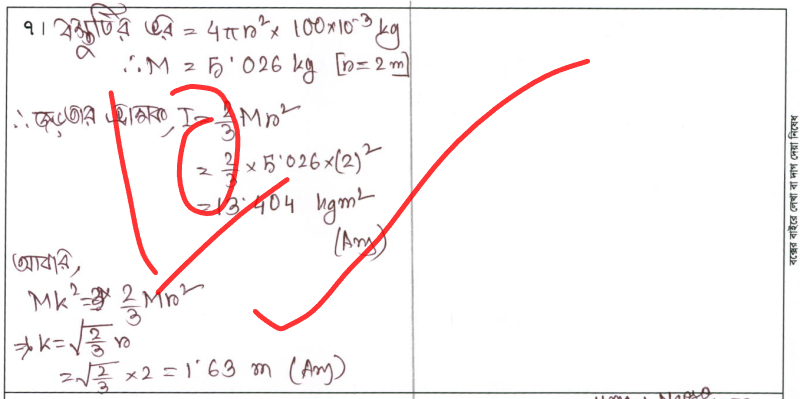 ৭। বস্তুটির ভর = 4πr² × 100×10⁻³ kg
∴ M = 5.026 kg [r = 2 m]
∴ জড়তার ভ্রামক, I = 2/3 Mr²
= 2/3 × 5.026 × (2)²
= 13.404 kgm²
(Ans)
আবার,
Mk² = 2/3 Mr²
⇒ k = √(2/3) r
= √(2/3) × 2 = 1.63 m (Ans)
বক্সের বাইরে লেখা বা দাগ দেয়া নিষেধ